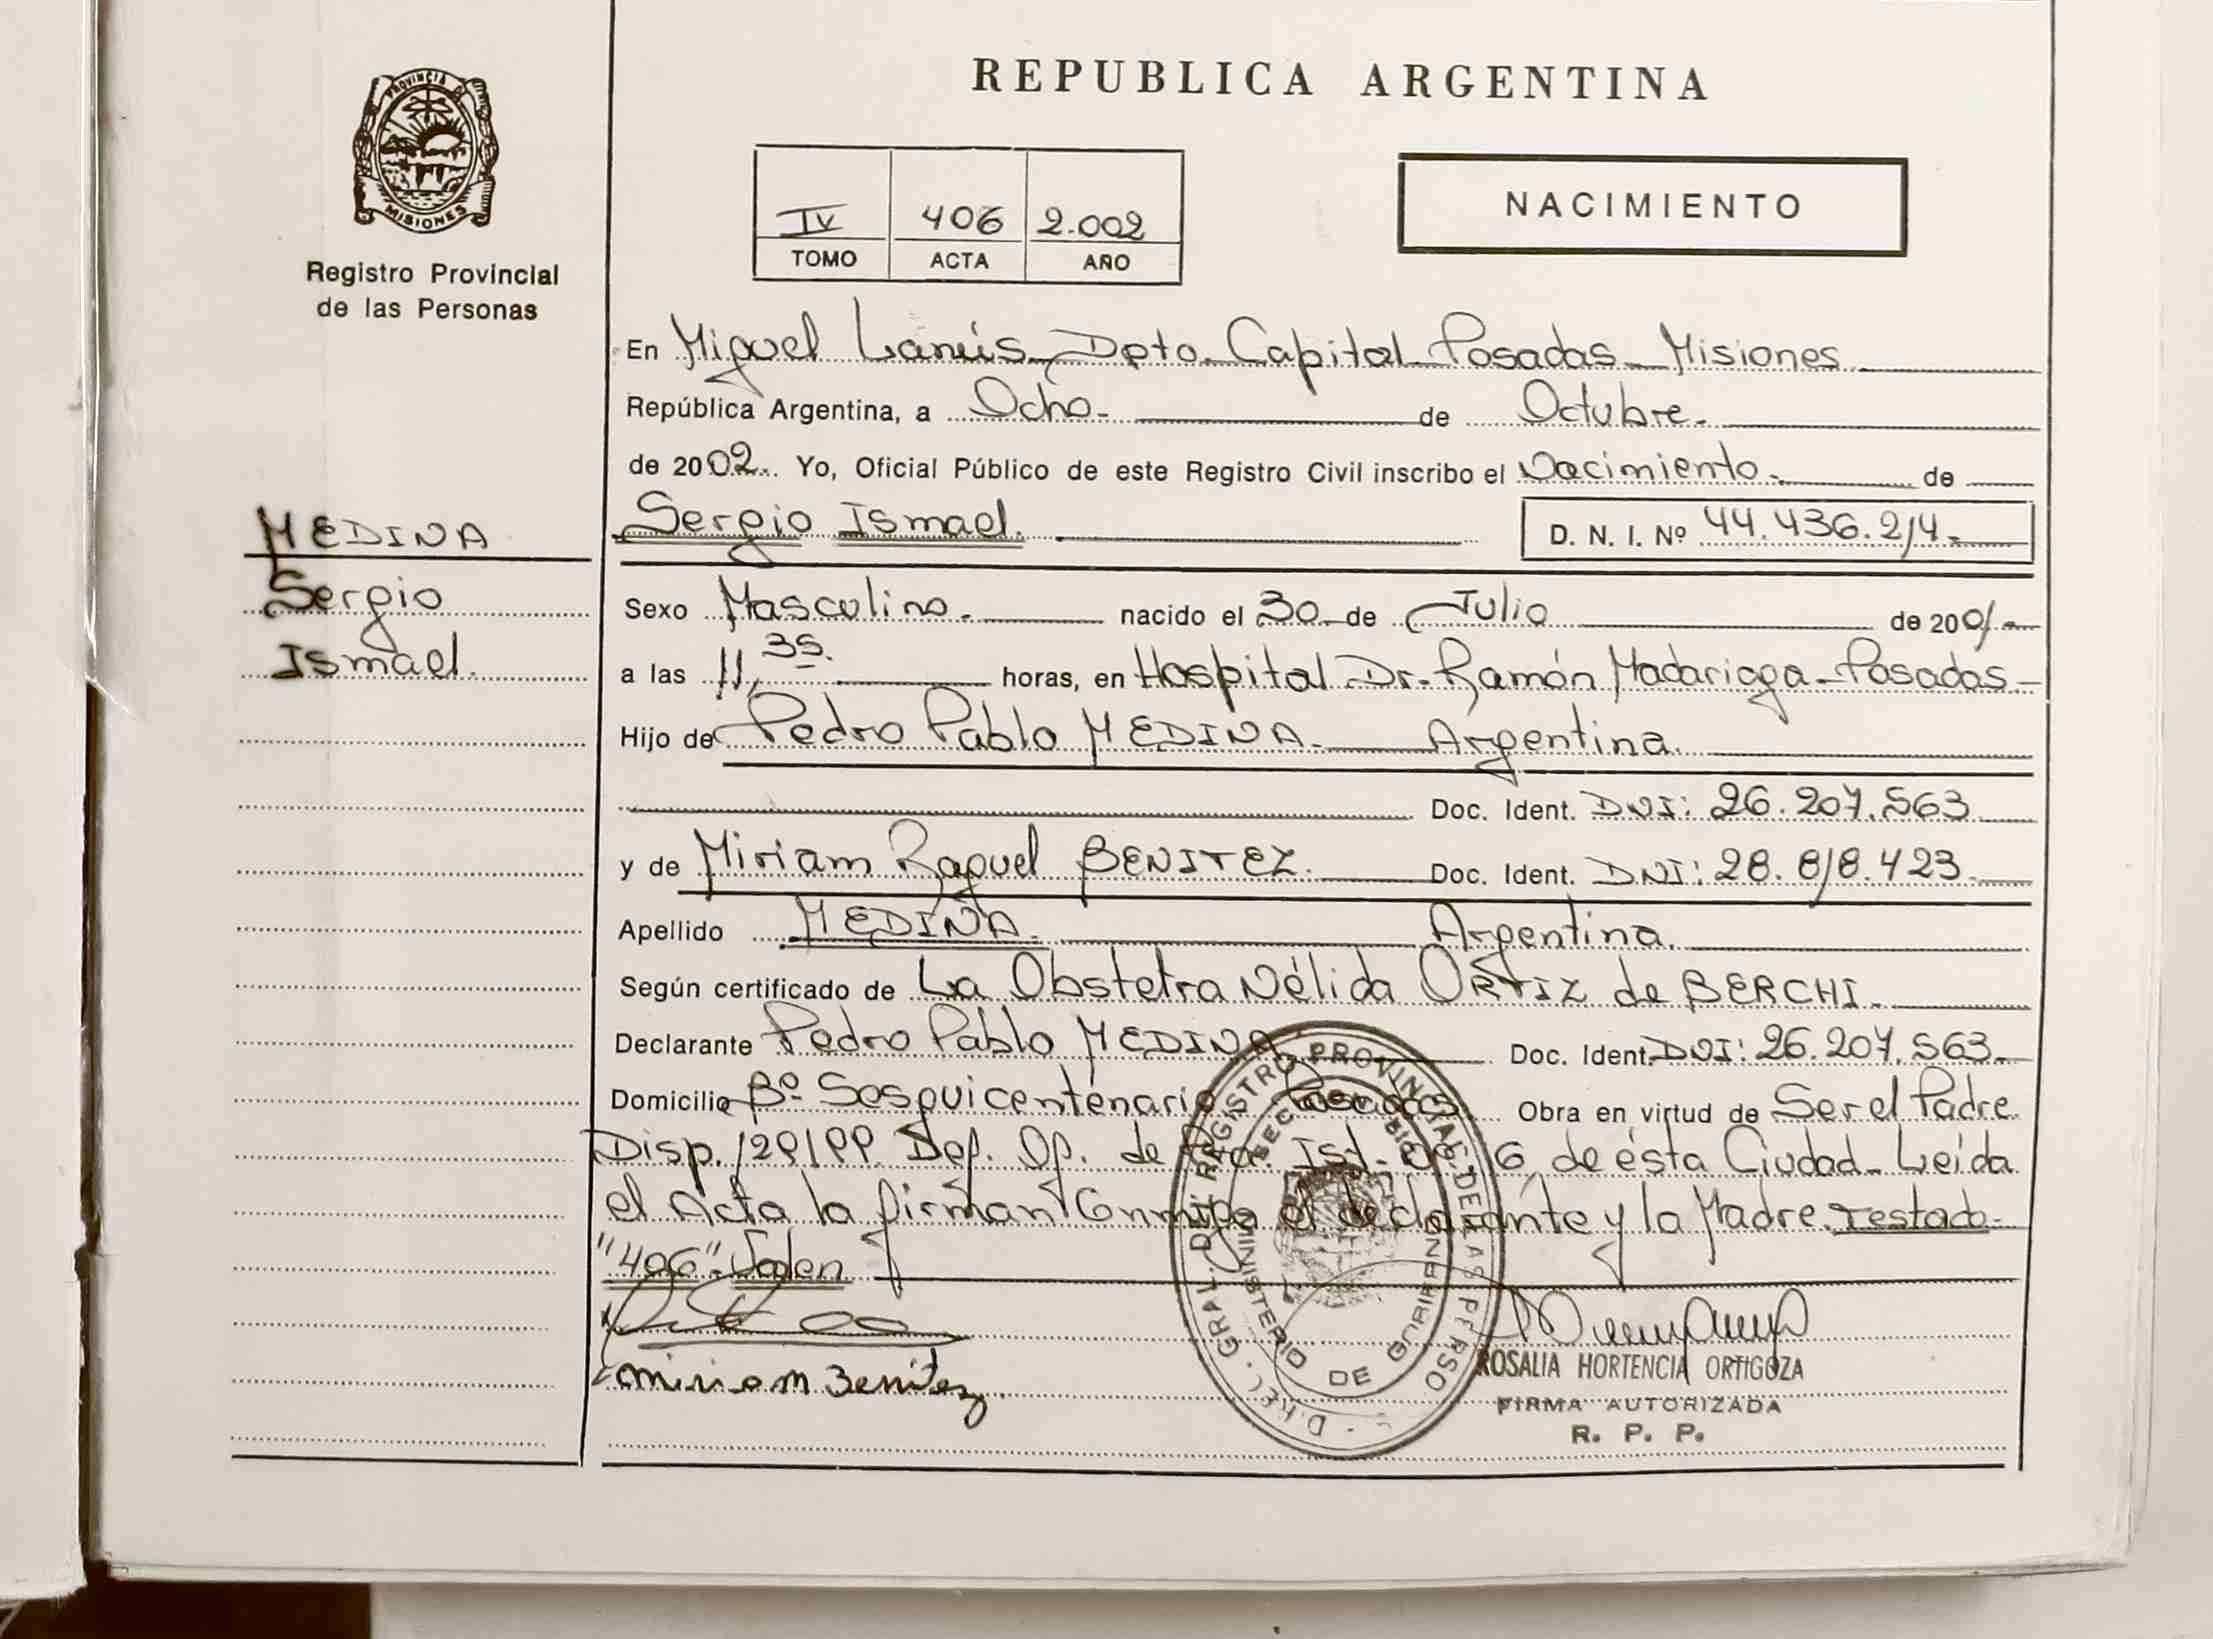 PROVINCIA DE
MISIONES
Registro Provincial
de las Personas
MEDINA
Sergio
Ismael.
REPUBLICA ARGENTINA
IV 406 2.002
TOMO ACTA AÑO
NACIMIENTO
En Miguel Lanús - Dpto. Capital Posadas - Misiones
República Argentina, a Ocho. de Octubre.
de 2002. Yo, Oficial Público de este Registro Civil inscribo el Nacimiento. de
Sergio Ismael. D. N. I. Nº 44.436.214.
Sexo Masculino. nacido el 30 de Julio de 2001.
a las 11,35. horas, en Hospital Dr. Ramón Madariaga - Posadas -
Hijo de Pedro Pablo MEDINA. Argentina.
Doc. Ident. DNI: 26.207.563
y de Miriam Raquel BENITEZ. Doc. Ident. DNI: 28.818.423.
Apellido MEDINA. Argentina.
Según certificado de La Obstetra Nélida ORTIZ de BERCHI.
Declarante Pedro Pablo MEDINA Doc. Ident. DNI: 26.207.563.
Domicilio Bº Sesquicentenario Posadas. Obra en virtud de Ser el Padre
Disp. 129/99. Def. Of. de 1ra. Ist. Nº 6, de ésta Ciudad - Leída
el Acta la firman Conmigo el declarante y la Madre. Testado
"406". Valen
Miriam Benitez
ROSALIA HORTENCIA ORTIGOZA
FIRMA AUTORIZADA
R. P. P.
DIREC. GRAL. DEL REGISTRO PROVINCIAL DE LAS PERSO
MINISTERIO DE GOBIERNO